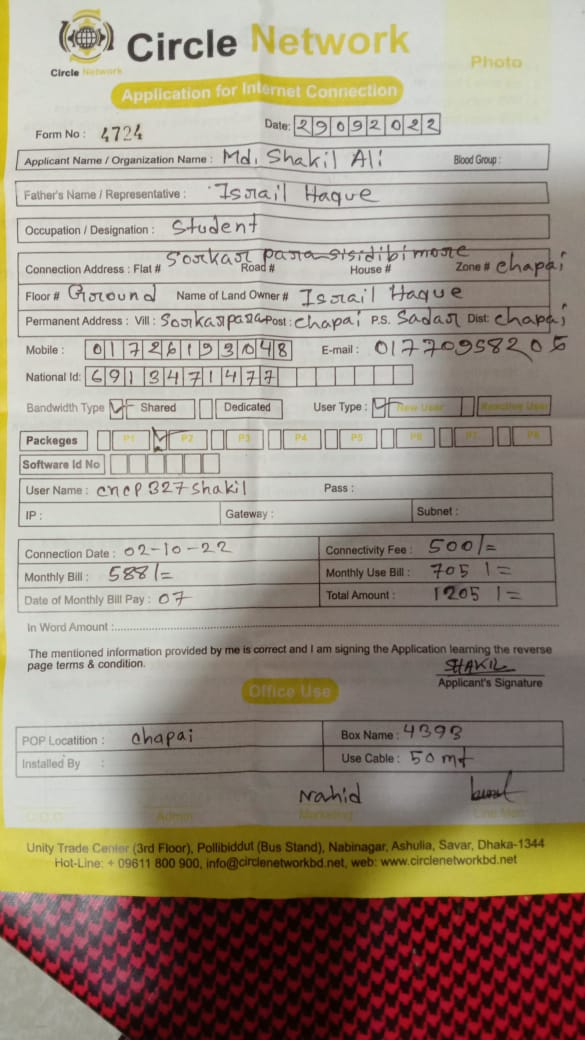 Circle Network
Circle Network
Photo
Application for Internet Connection
Form No : 4724
Date: 29092022
Applicant Name / Organization Name : Md. Shakil Ali Blood Group :
Father's Name / Representative : Israil Haque
Occupation / Designation : Student
Connection Address : Flat # Sorkar para sisidibi more Road # House # Zone # chapai
Floor # Ground Name of Land Owner # Israil Haque
Permanent Address : Vill : Sorkarpara Post : chapai P.S. Sadar Dist: chapai
Mobile : 01726193048 E-mail : 01770958205
National Id: 6913471477
Bandwidth Type Shared Dedicated User Type : New User Reactive User
Packeges P1 P2 P3 P4 P5 P6 P7 P8
Software Id No
User Name : cncp327shakil Pass :
IP : Gateway : Subnet :
Connection Date : 02-10-22 Connectivity Fee : 500/=
Monthly Bill : 588/= Monthly Use Bill : 705/=
Date of Monthly Bill Pay : 07 Total Amount : 1205/=
In Word Amount :
The mentioned information provided by me is correct and I am signing the Application learning the reverse
page terms & condition.
SHAKIL
Applicant's Signature
Office Use
POP Locatition : chapai Box Name : 4393
Installed By : Use Cable : 50 mt
Nahid
Admin Marketing Line Man
Unity Trade Center (3rd Floor), Pollibiddut (Bus Stand), Nabinagar, Ashulia, Savar, Dhaka-1344
Hot-Line: + 09611 800 900, info@circlenetworkbd.net, web: www.circlenetworkbd.net